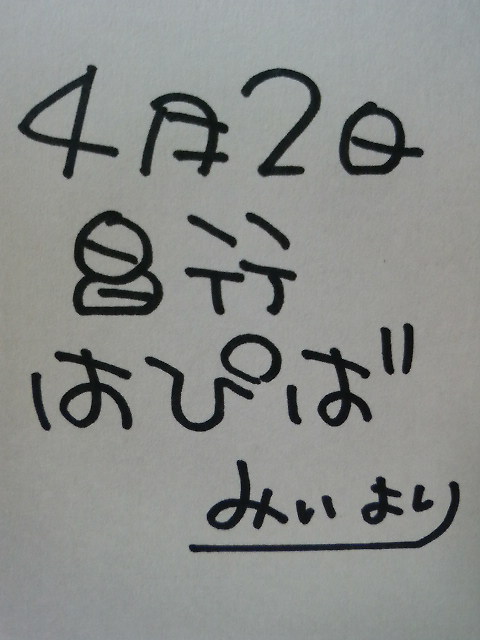 4月2日
昌行
はぴば
みぃより